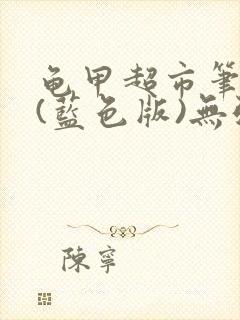 龟甲超市筆
(藍色版)無
陳寧